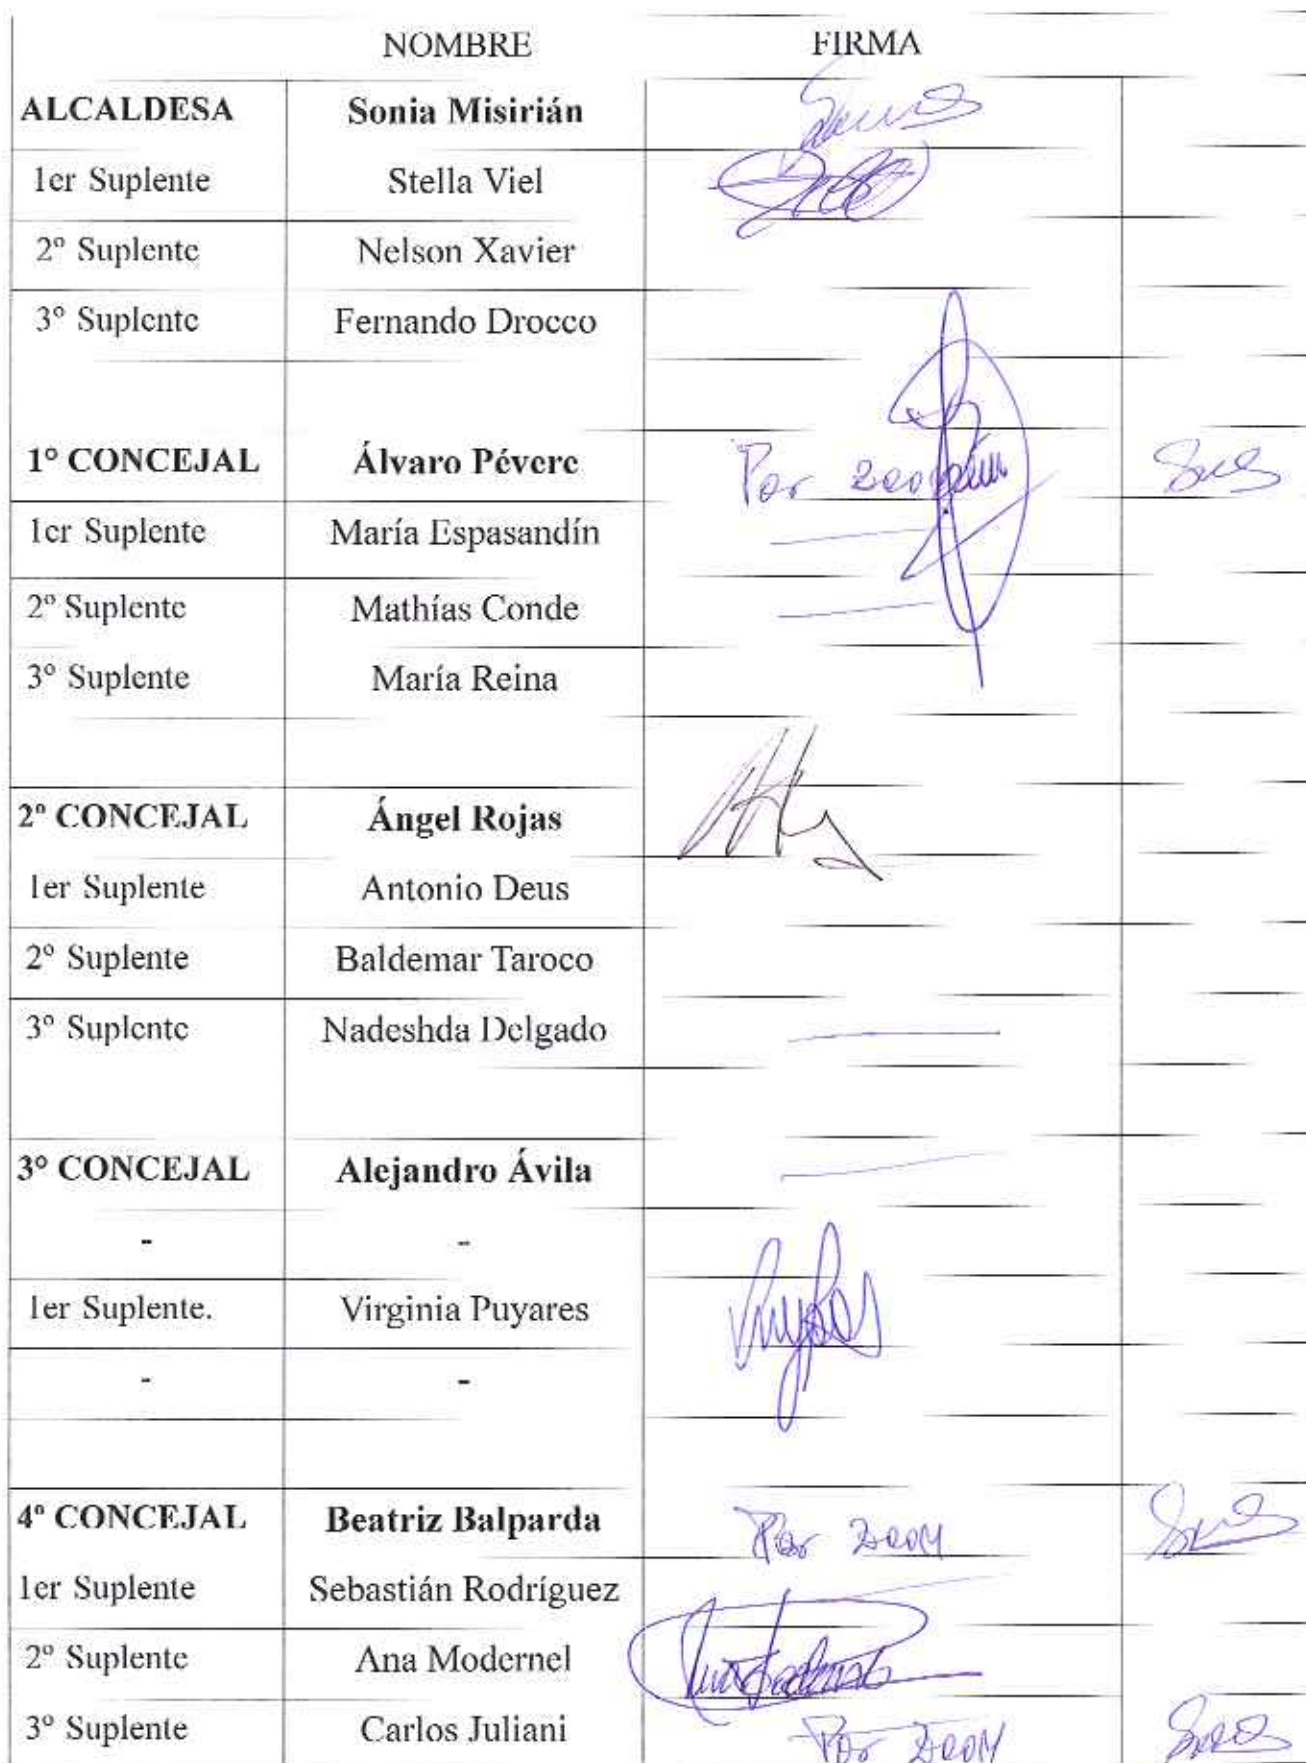 NOMBRE FIRMA
ALCALDESA Sonia Misirián
1er Suplente Stella Viel
2º Suplente Nelson Xavier
3º Suplente Fernando Drocco
1º CONCEJAL Álvaro Pévere Por zoom
1er Suplente María Espasandín
2º Suplente Mathías Conde
3º Suplente María Reina
2º CONCEJAL Ángel Rojas
1er Suplente Antonio Deus
2º Suplente Baldemar Taroco
3º Suplente Nadeshda Delgado
3º CONCEJAL Alejandro Ávila
- -
1er Suplente. Virginia Puyares
- -
4º CONCEJAL Beatriz Balparda Por zoom
1er Suplente Sebastián Rodríguez
2º Suplente Ana Modernel
3º Suplente Carlos Juliani Por zoom